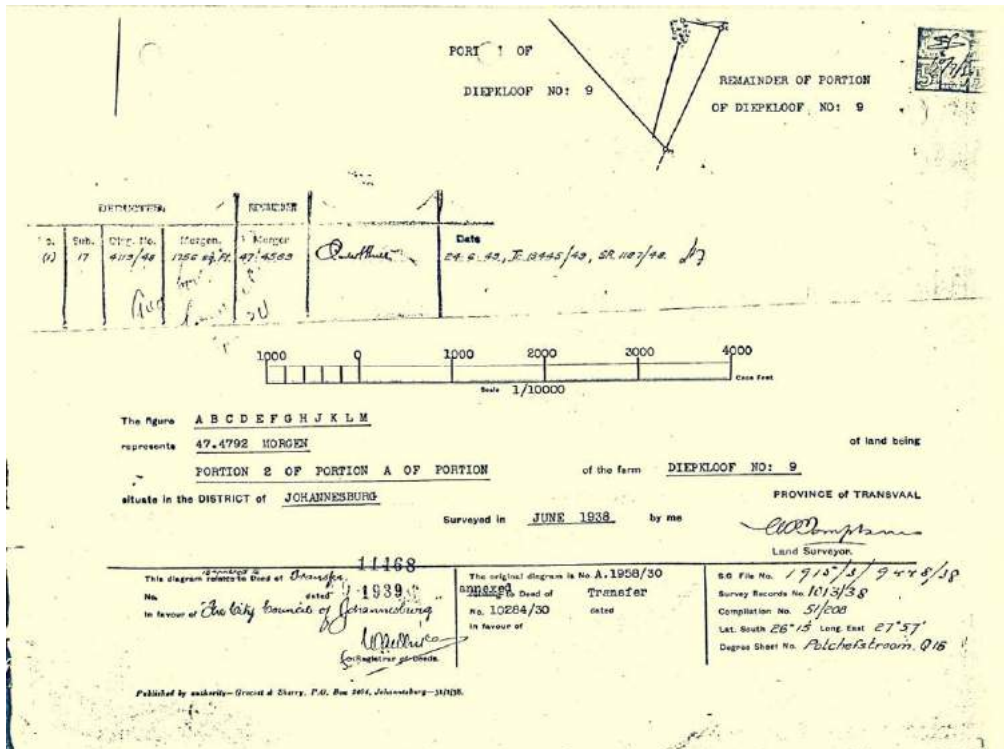 PORT 1 OF
DIEPKLOOF NO: 9
REMAINDER OF PORTION
OF DIEPKLOOF NO: 9
DEDUCTED. REMAINDER
Sub. Morgen. Morgen Date
(1) 17 4113/48 1756 sq.ft. 47.4583 24.6.49, T. 13445/49, SR. 1107/48.
1000 0 1000 2000 3000 4000
Cape Feet
Scale 1/10000
The figure A B C D E F G H J K L M
represents 47.4792 MORGEN of land being
PORTION 2 OF PORTION A OF PORTION of the farm DIEPKLOOF NO: 9
situate in the DISTRICT of JOHANNESBURG PROVINCE of TRANSVAAL
Surveyed in JUNE 1938 by me
Land Surveyor.
11468
This diagram relates to Deed of Transfer
No. dated 1939
in favour of The City Council of Johannesburg
for Registrar of Deeds.
The original diagram is No A.1958/30
annexed to Deed of Transfer
No. 10284/30 dated
in favour of
S.G File No.
Survey Records No. 1013/38
Compilation No. 51/208
Lat. South 26°15 Long. East 27°57'
Degree Sheet No. Potchefstroom. Q 16
Published by authority—Grocott & Sherry, P.O. Box